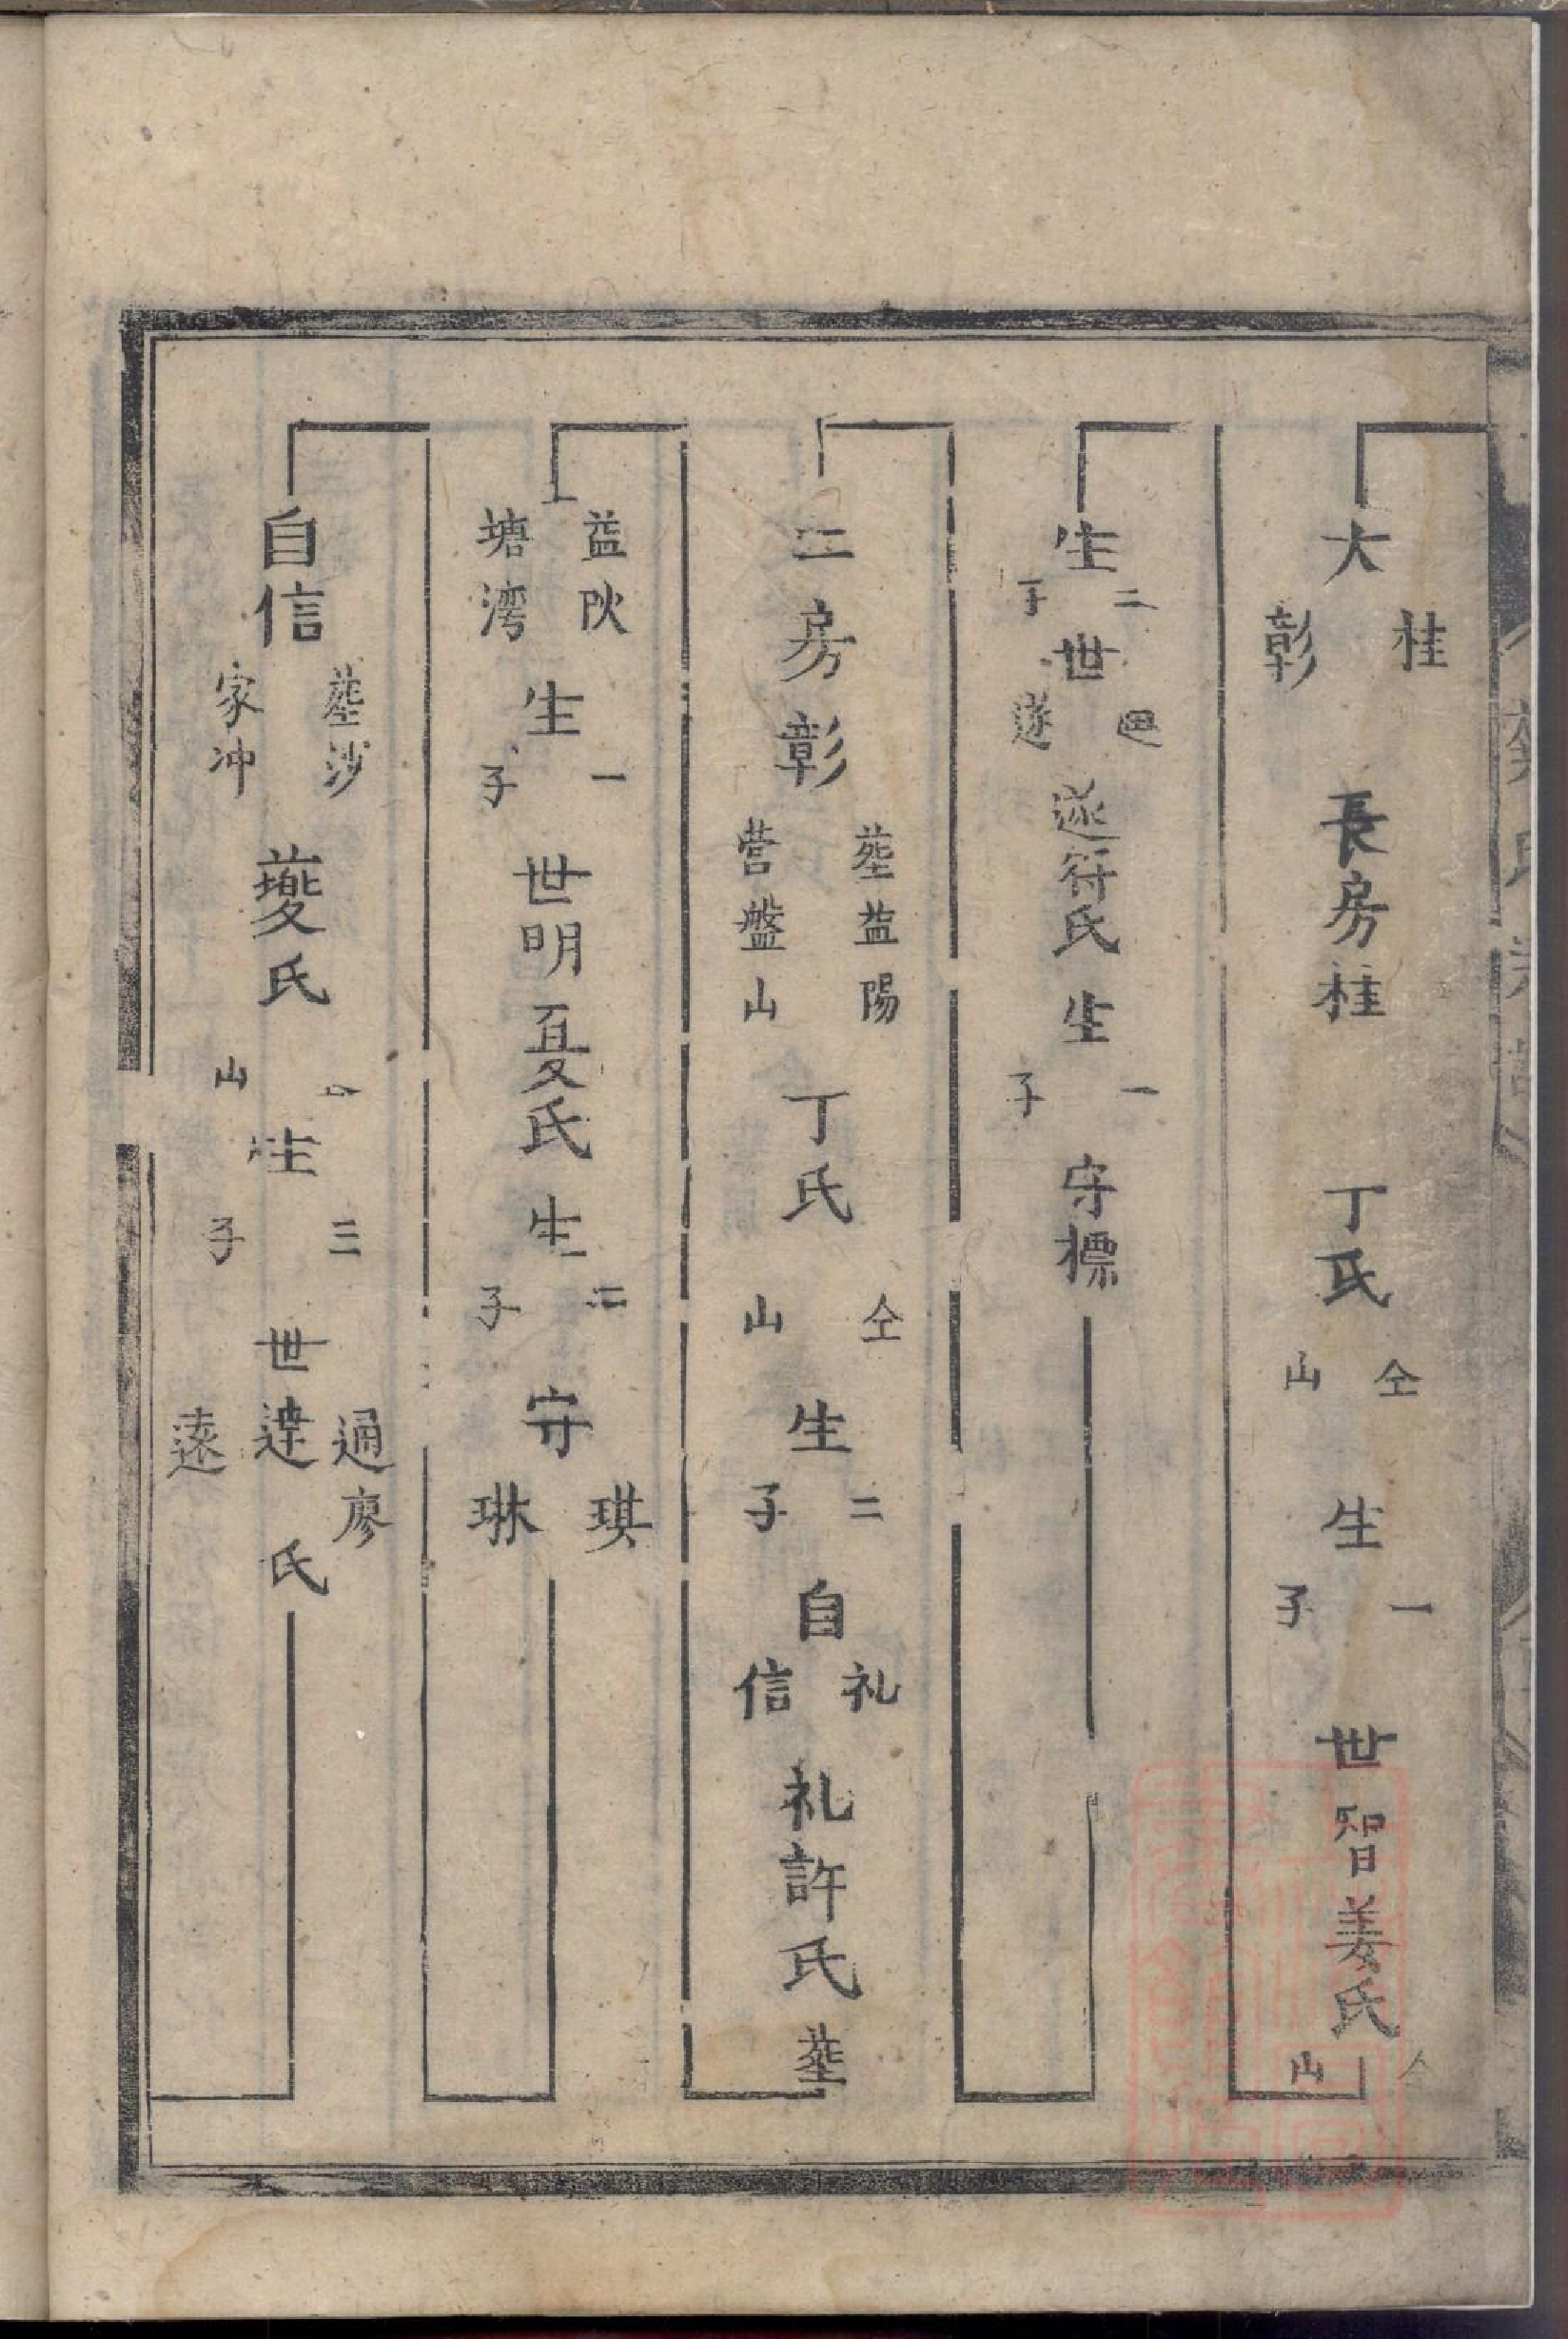 大桂彰長房桂丁氏仝山生一子世智姜氏仝山
生二子世遂遂符氏生一子守標
二房彰塟益陽营盤山丁氏仝山生二子自礼信礼許氏塟
益阦塘湾生一子世明夏氏生二子守琪琳
自信塟沙家冲夔氏仝山生三子世通達遠廖氏